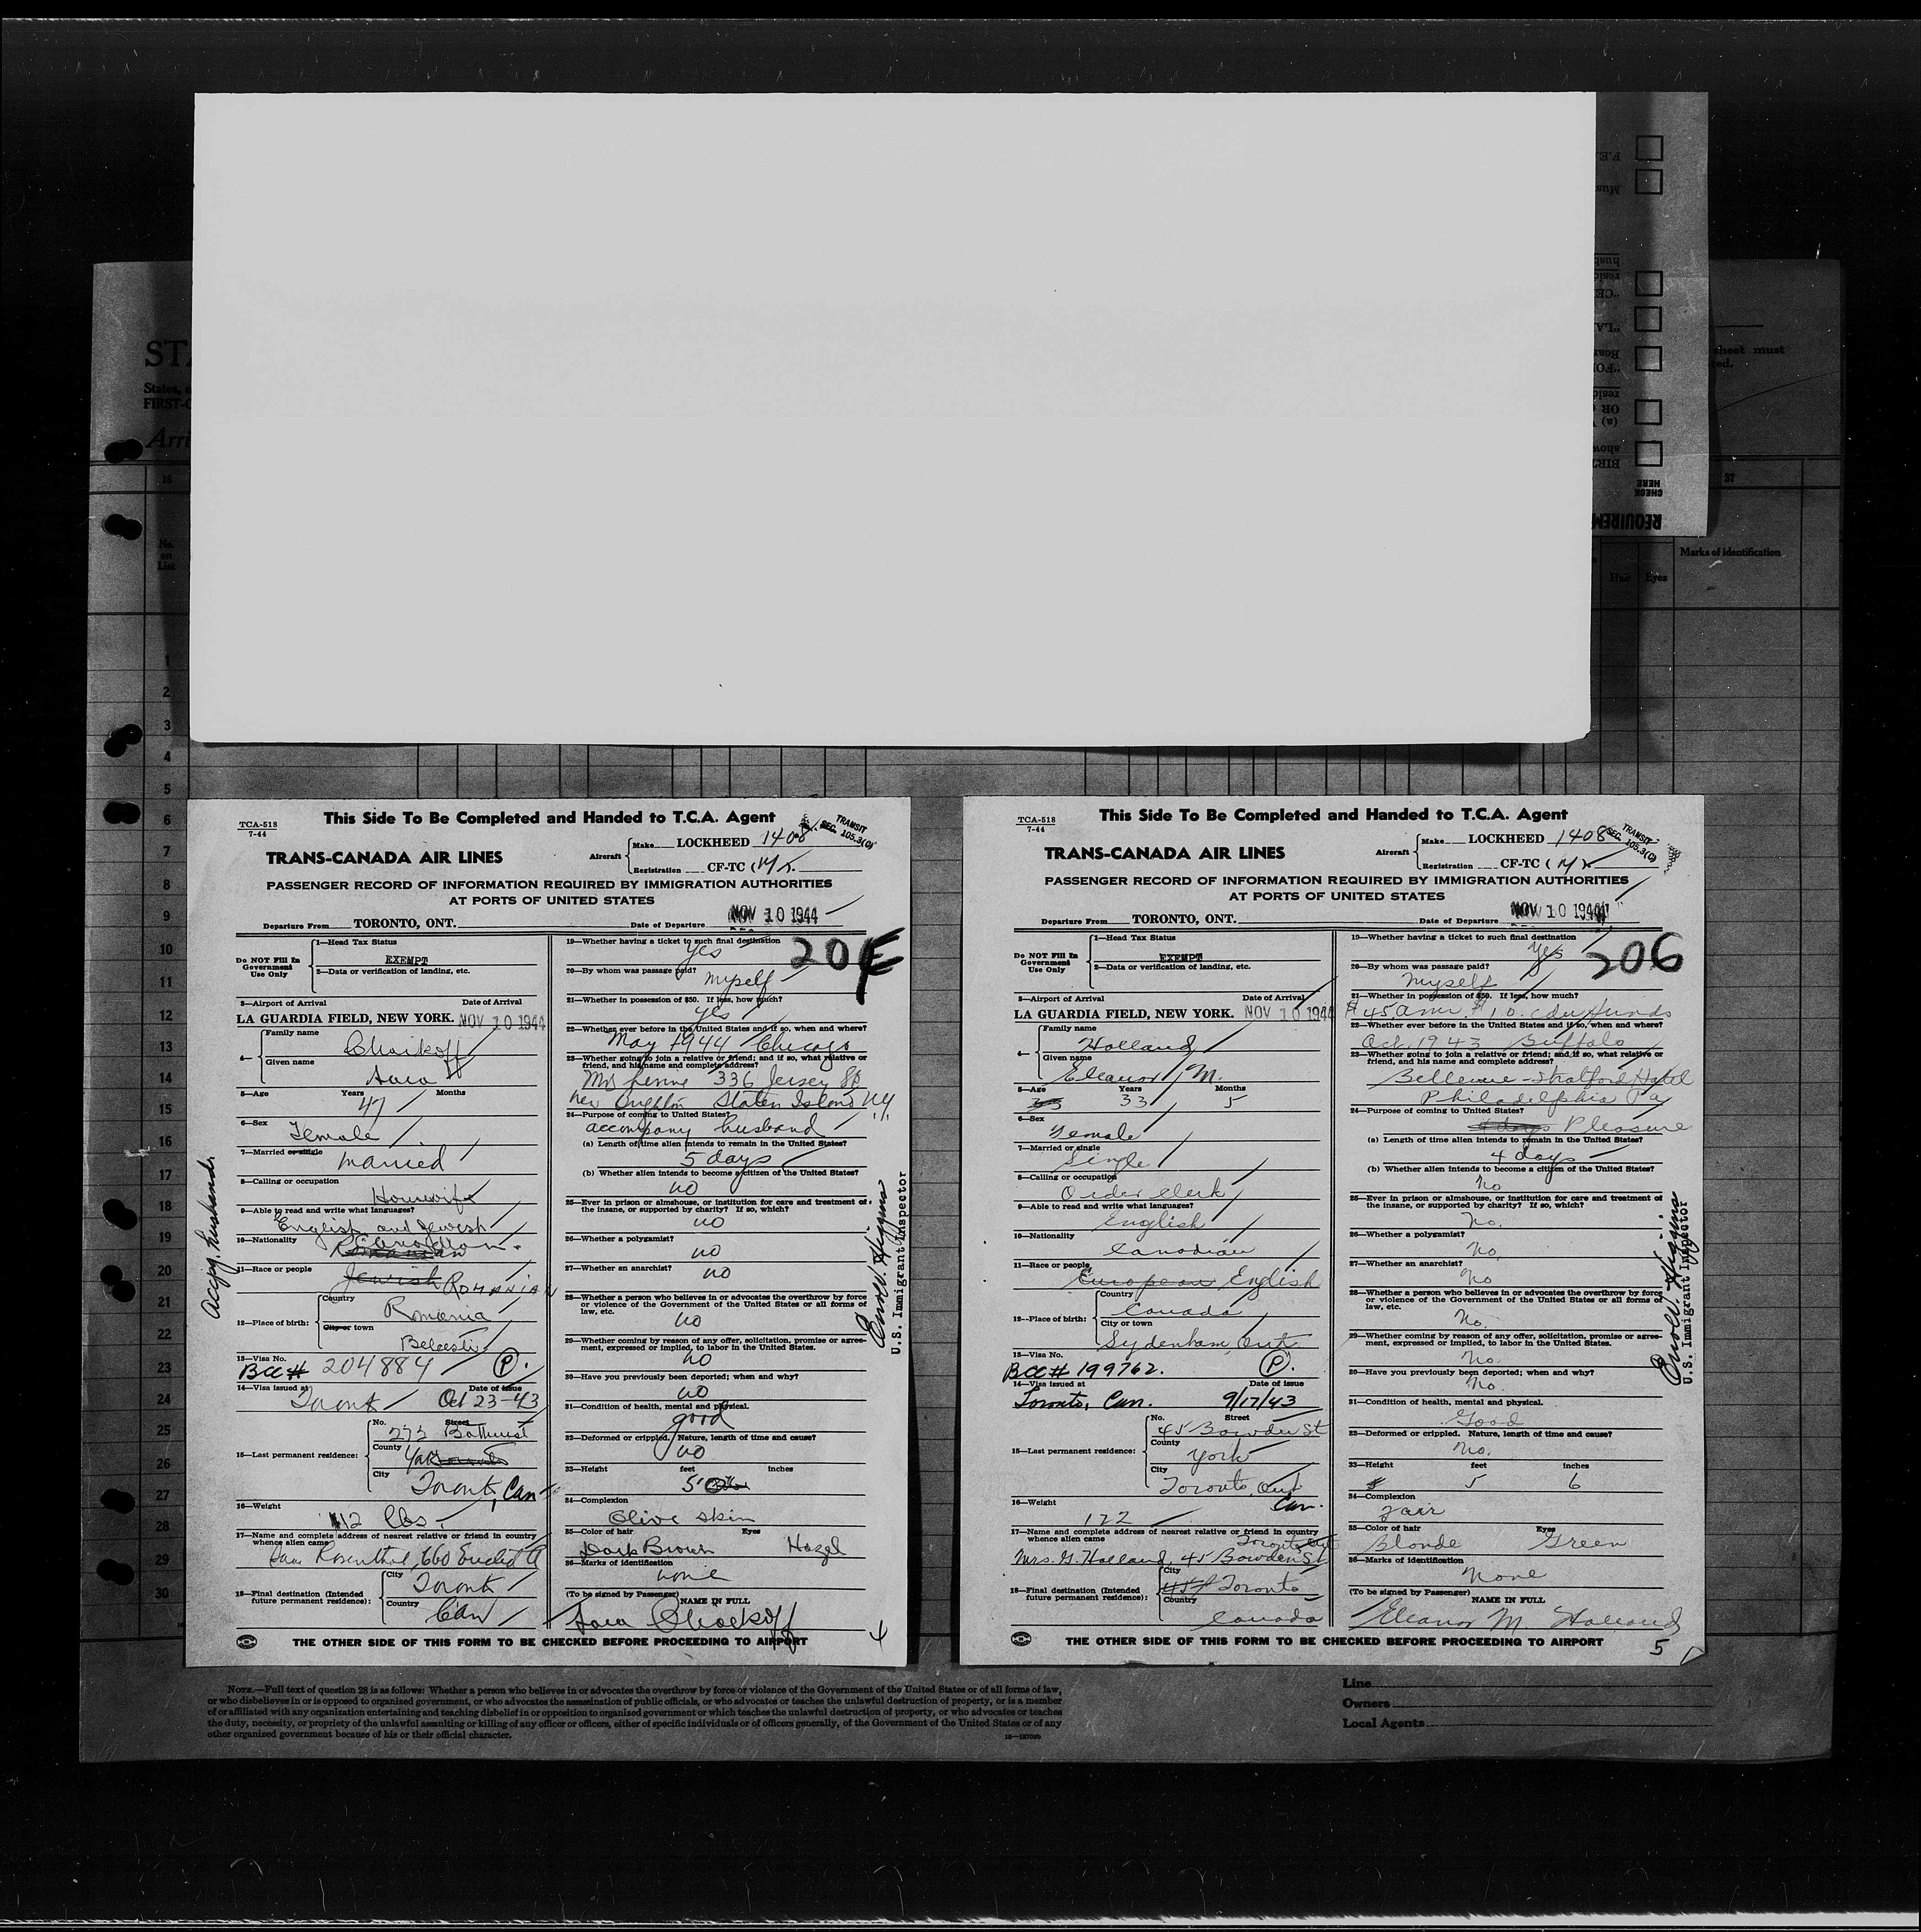 This Side To Be Completed and Handed to T.C.A. Agent
TCA-518
7-44
TRANS-CANADA AIR LINES
Aircraft
Make LOCKHEED 1408
Registration CF-TC
TRANSIT
SEC. 105.3(C)
PASSENGER RECORD OF INFORMATION REQUIRED BY IMMIGRATION AUTHORITIES
AT PORTS OF UNITED STATES
Departure From TORONTO, ONT. Date of Departure NOV 10 1944
Do NOT Fill In
Government
Use Only
1—Head Tax Status
EXEMPT
2—Data or verification of landing, etc.
3—Airport of Arrival Date of Arrival
LA GUARDIA FIELD, NEW YORK. NOV 10 1944
4—
Family name
Chaikoff
Given name
Sara
5—Age Years Months
47
6—Sex
Female
7—Married or single
Married
8—Calling or occupation
Housewife
9—Able to read and write what languages?
English and Jewish
10—Nationality
11—Race or people
Jewish ROMANIAN
12—Place of birth:
Country
Romania
City or town
13—Visa No.
BCC# 204884 P.
14—Visa issued at Date of issue
Toronto Oct 23-43
15—Last permanent residence:
No. Street
273 Bathurst
County
York
City
Toronto, Can
16—Weight
112 lbs.
17—Name and complete address of nearest relative or friend in country
whence alien came
Rosenthal, 660 Euclid
18—Final destination (Intended
future permanent residence):
City
Toronto
Country
Can
Accpy. husband.
19—Whether having a ticket to such final destination
yes
20—By whom was passage paid?
myself
21—Whether in possession of $50. If less, how much?
yes
22—Whether ever before in the United States and if so, when and where?
May 1944 Chicago
23—Whether going to join a relative or friend; and if so, what relative or
friend, and his name and complete address?
Mrs 336 Jersey St
New Brighton Staten Island N.Y.
24—Purpose of coming to United States?
accompany husband
(a) Length of time alien intends to remain in the United States?
5 days
(b) Whether alien intends to become a citizen of the United States?
no
25—Ever in prison or almshouse, or institution for care and treatment of
the insane, or supported by charity? If so, which?
no
26—Whether a polygamist?
no
27—Whether an anarchist?
no
28—Whether a person who believes in or advocates the overthrow by force
or violence of the Government of the United States or all forms of
law, etc.
no
29—Whether coming by reason of any offer, solicitation, promise or agree-
ment, expressed or implied, to labor in the United States.
no
30—Have you previously been deported; when and why?
no
31—Condition of health, mental and physical.
good
32—Deformed or crippled. Nature, length of time and cause?
no
33—Height feet inches
5'
34—Complexion
Olive skin
35—Color of hair Eyes
Dark Brown Hazel
36—Marks of identification
none
(To be signed by Passenger) NAME IN FULL
Sara Chaikoff
U.S. Immigrant Inspector
THE OTHER SIDE OF THIS FORM TO BE CHECKED BEFORE PROCEEDING TO AIRPORT
4
This Side To Be Completed and Handed to T.C.A. Agent
TCA-518
7-44
TRANS-CANADA AIR LINES
Aircraft
Make LOCKHEED 1408
Registration CF-TC
TRANSIT
SEC. 105.3(C)
PASSENGER RECORD OF INFORMATION REQUIRED BY IMMIGRATION AUTHORITIES
AT PORTS OF UNITED STATES
Departure From TORONTO, ONT. Date of Departure NOV 10 1944
Do NOT Fill In
Government
Use Only
1—Head Tax Status
EXEMPT
2—Data or verification of landing, etc.
3—Airport of Arrival Date of Arrival
LA GUARDIA FIELD, NEW YORK. NOV 10 1944
4—
Family name
Holland
Given name
Eleanor M.
5—Age Years Months
33 5
6—Sex
Female
7—Married or single
Single
8—Calling or occupation
Order Clerk
9—Able to read and write what languages?
English
10—Nationality
Canadian
11—Race or people
European English
12—Place of birth:
Country
Canada
City or town
Sydenham, Ont.
13—Visa No.
BCC# 199762. P.
14—Visa issued at Date of issue
Toronto, Can. 9/17/43
15—Last permanent residence:
No. Street
45 Bowden St
County
York
City
Toronto, Ont
Can.
16—Weight
122
17—Name and complete address of nearest relative or friend in country
whence alien came
Toronto Ont
Mrs. G. Holland, 45 Bowden St.
18—Final destination (Intended
future permanent residence):
City
Toronto
Country
Canada
206
19—Whether having a ticket to such final destination
Yes
20—By whom was passage paid?
Myself
21—Whether in possession of $50. If less, how much?
$45. amer. $10. cdn funds
22—Whether ever before in the United States and if so, when and where?
Oct. 1943 Buffalo
23—Whether going to join a relative or friend; and if so, what relative or
friend, and his name and complete address?
Bellevue-Stratford Hotel
Philadelphia Pa
24—Purpose of coming to United States?
4 days Pleasure
(a) Length of time alien intends to remain in the United States?
4 days
(b) Whether alien intends to become a citizen of the United States?
No
25—Ever in prison or almshouse, or institution for care and treatment of
the insane, or supported by charity? If so, which?
No.
26—Whether a polygamist?
No.
27—Whether an anarchist?
No
28—Whether a person who believes in or advocates the overthrow by force
or violence of the Government of the United States or all forms of
law, etc.
No.
29—Whether coming by reason of any offer, solicitation, promise or agree-
ment, expressed or implied, to labor in the United States.
No.
30—Have you previously been deported; when and why?
No.
31—Condition of health, mental and physical.
Good
32—Deformed or crippled. Nature, length of time and cause?
No.
33—Height feet inches
5 6
34—Complexion
Fair
35—Color of hair Eyes
Blonde Green
36—Marks of identification
None
(To be signed by Passenger) NAME IN FULL
Eleanor M Holland
U.S. Immigrant Inspector
THE OTHER SIDE OF THIS FORM TO BE CHECKED BEFORE PROCEEDING TO AIRPORT
5
NOTE.—Full text of question 28 is as follows: Whether a person who believes in or advocates the overthrow by force or violence of the Government of the United States or of all forms of law,
or who disbelieves in or is opposed to organized government, or who advocates the assassination of public officials, or who advocates or teaches the unlawful destruction of property, or is a member
of or affiliated with any organization entertaining and teaching disbelief in or opposition to organized government or which teaches the unlawful destruction of property, or who advocates or teaches
the duty, necessity, or propriety of the unlawful assaulting or killing of any officer or officers, either of specific individuals or of officers generally, of the Government of the United States or of any
other organized government because of his or their official character.
Line
Owners
Local Agents
No.
on
List
1
2
3
4
5
6
7
8
9
10
11
12
13
14
15
16
17
18
19
20
21
22
23
24
25
26
27
28
29
30
37
Marks of identification
Hair Eyes
CHECK
HERE